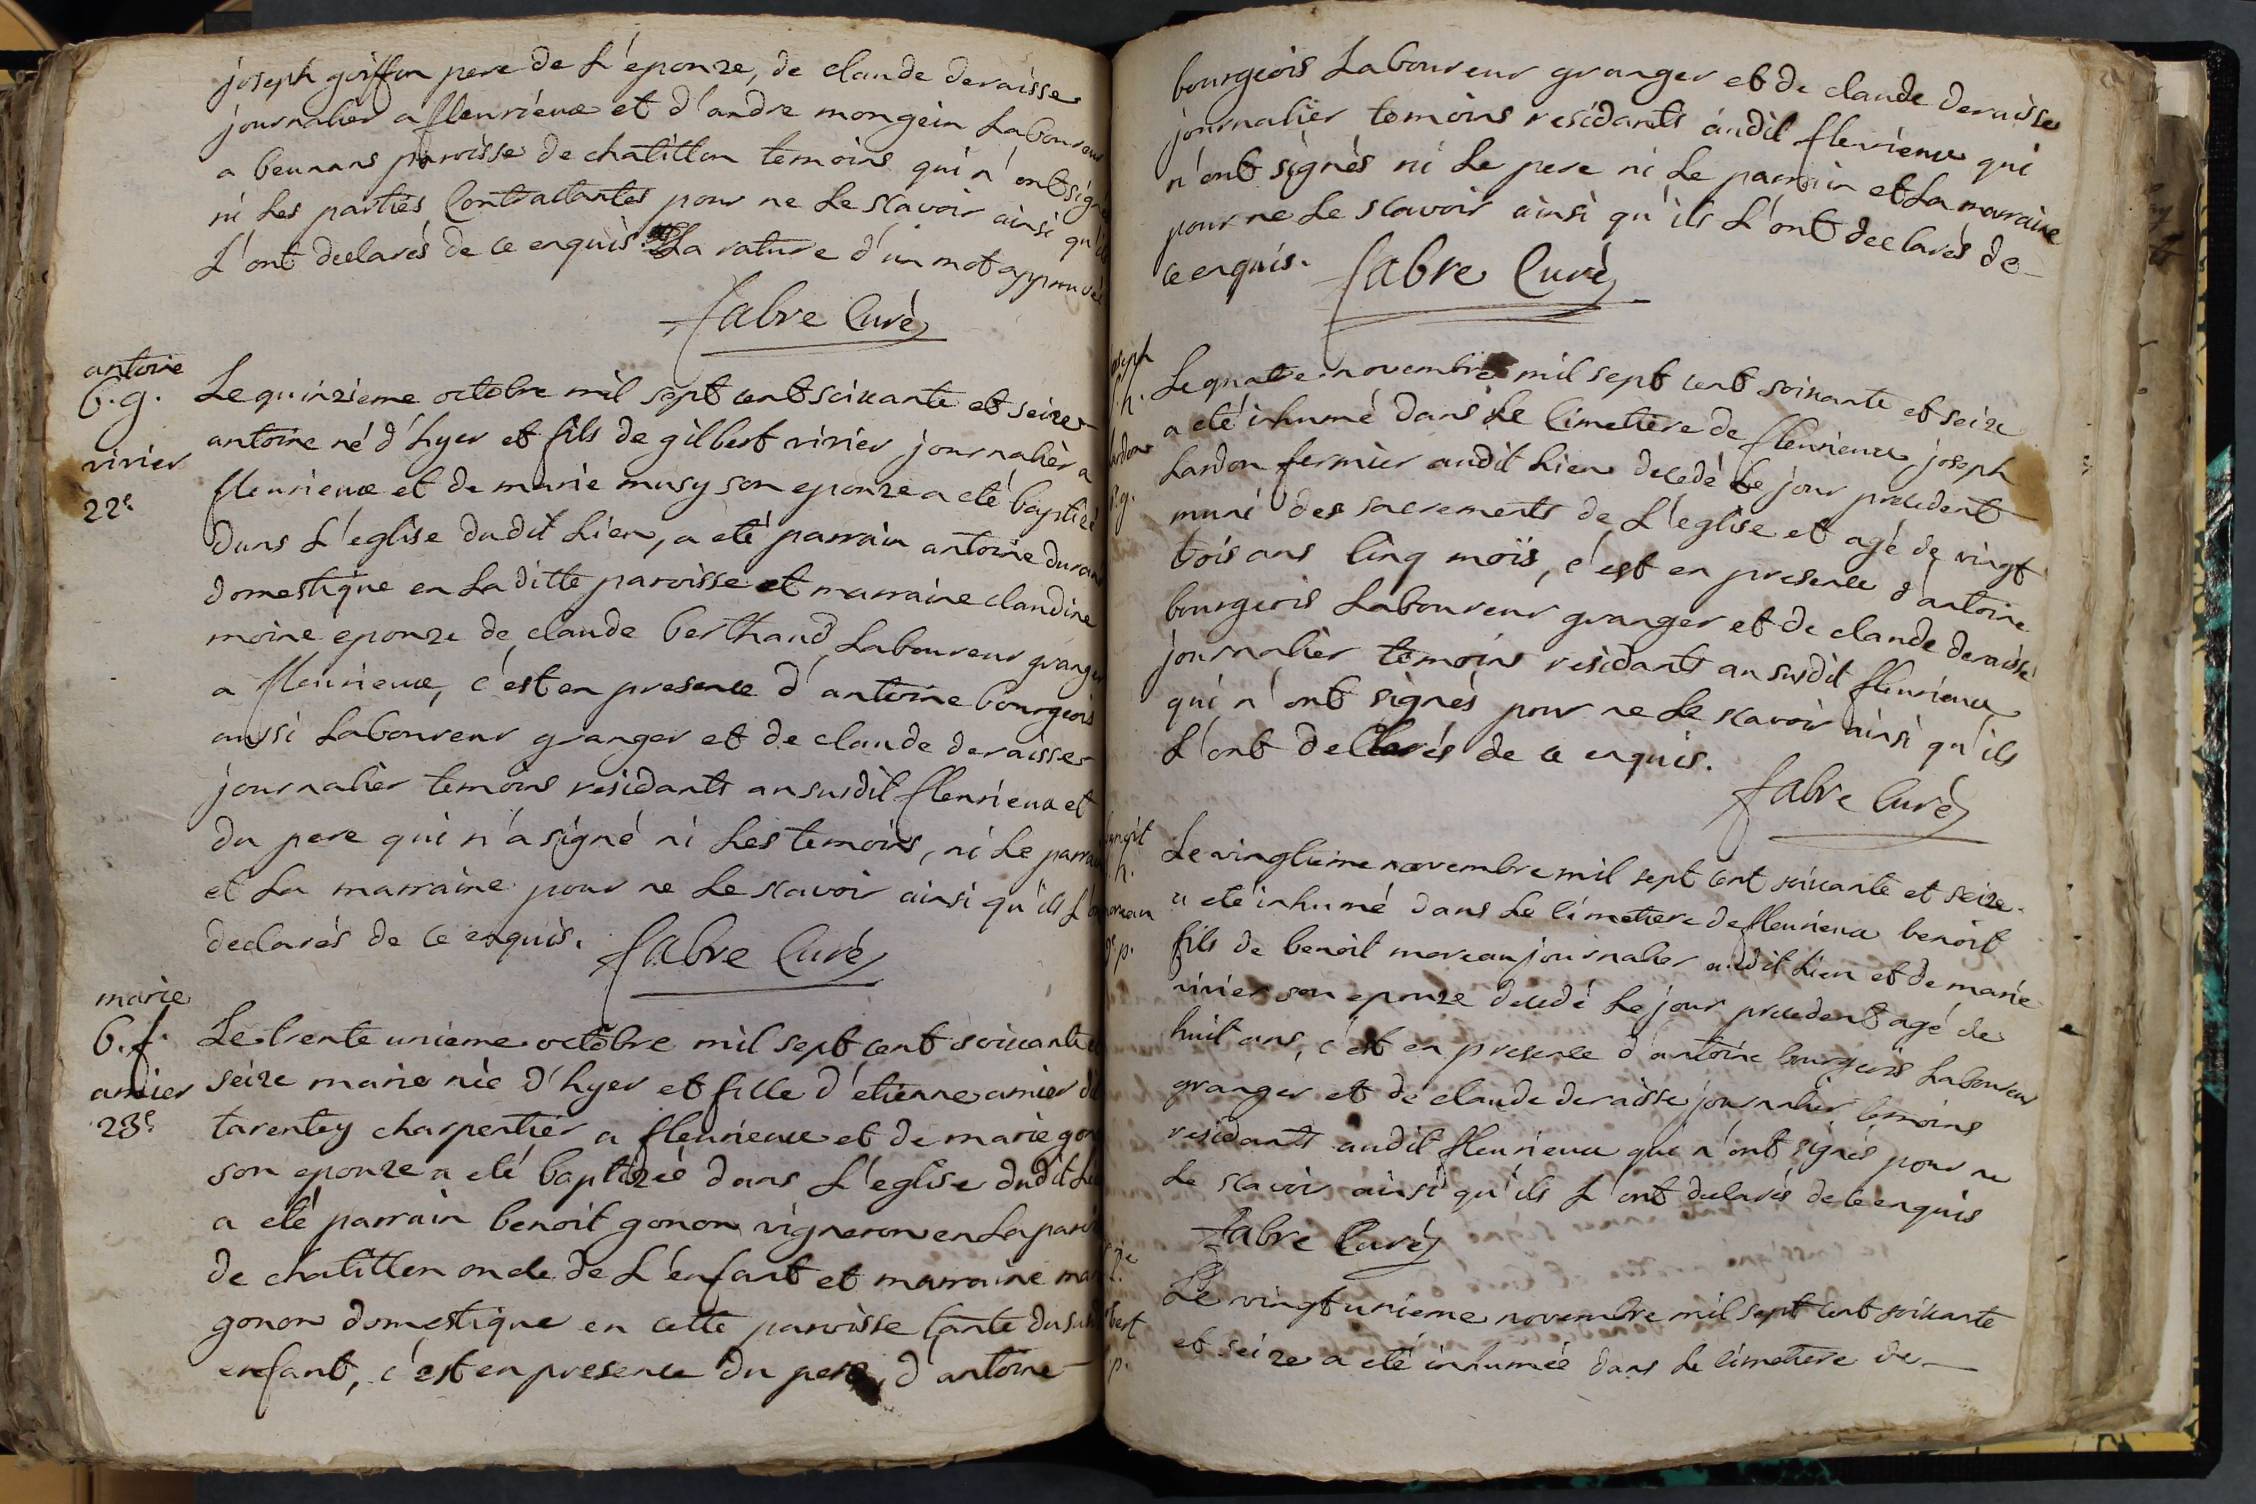 joseph goiffon pere de L'epouze, de claude deraisse
journalier a fleurieux et d'andre mongein Laboureur
a beunans paroisse de chatillon temoins qui n'ont signé
ni Les parties Contractantes pour ne Le scavoir ainsi qu'ils
L'ont declarés de ce enquis. La rature d'un mot approuvée
fabre Curé
antoine
b. g.
vivier
22e
Le quinzieme octobre mil sept cent soixante et seize
antoine né d'hyer et fils de gilbert vivier journalier a
fleurieux et de marie musy son epouze a eté baptizé
dans L'eglise dudit Lieu, a eté parrain antoine duran
domestique en La ditte paroisse et marraine claudine
moine epouze de claude berthaud Laboureur granger
a fleurieux, c'est en presence d'antoine bourgeois
aussi Laboureur granger et de claude deraisse
journalier temoins residants au susdit fleurieux et
du pere qui n'a signé ni Les temoins, ni Le parrain
et La marraine pour ne Le scavoir ainsi qu'ils L'ont
declarés de ce enquis. fabre Curé
marie
b. f.
amier
23e
Le trente unieme octobre mil sept cent soixante et
seize marie née d'hyer et fille d'etienne amier dit
tarentey charpentier a fleurieux et de marie gon
son epouze a eté baptizée dans L'eglise dudit Lieu
a eté parrain benoit gonon vigneron en La paroi
de chatillon oncle de L'enfant et marraine mar
gonon domestique en cette paroisse tante du susd
enfant, c'est en presence du pere, d'antoine
bourgeois Laboureur granger et de claude deraisse
journalier temoins residants audit fleurieux qui
n'ont signés ni Le pere ni Le parrain et La marraine
pour ne Le scavoir ainsi qu'ils L'ont declarés de
ce enquis. fabre Curé
joseph
h.
Lardon
p. g.
Le quatre novembre mil sept cent soixante et seize
a eté inhumé dans Le Cimetiere de fleurieux joseph
Lardon fermier audit Lieu decedé Le jour precedent
muni des sacrements de L'eglise et agé de vingt
trois ans Cinq mois, c'est en presence d'antoine
bourgeois Laboureur granger et de claude deraisse
journalier temoins residants au susdit fleurieux
qui n'ont signés pour ne Le scavoir ainsi qu'ils
L'ont declarés de ce enquis.
fabre Curé
benoit
h.
moreau
p.
Le vingtieme novembre mil sept cent soixante et seize
a eté inhumé dans Le Cimetiere de fleurieux benoit
fils de benoit moreau journalier audit Lieu et de marie
vivier son epouze decedé Le jour precedent agé de
huit ans, c'est en presence d'antoine bourgeois Laboureur
granger et de claude deraisse journalier temoins
residants audit fleurieux qui n'ont signés pour ne
Le scavoir ainsi qu'ils L'ont declarés de ce enquis
fabre Curé
bert
p.
Le vingt unieme novembre mil sept cent soixante
et seize a eté inhumée dans Le Cimetiere de